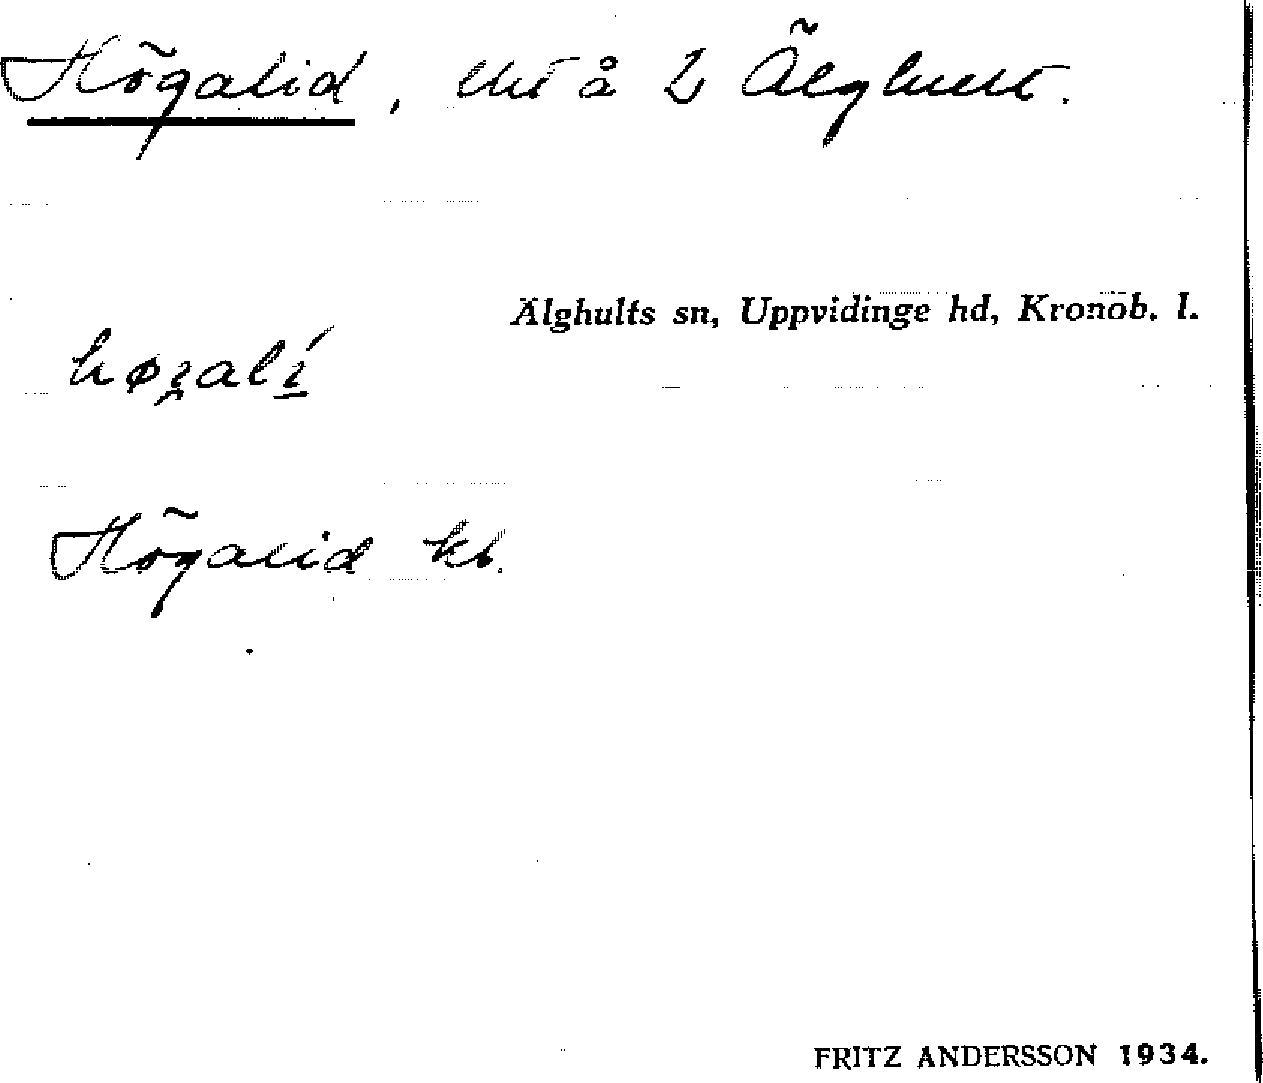 Högalid, lht å 2 Älghult.
Älghults sn, Uppvidinge hd, Kronob. l.
Högalid kb.
FRITZ ANDERSSON 1934.